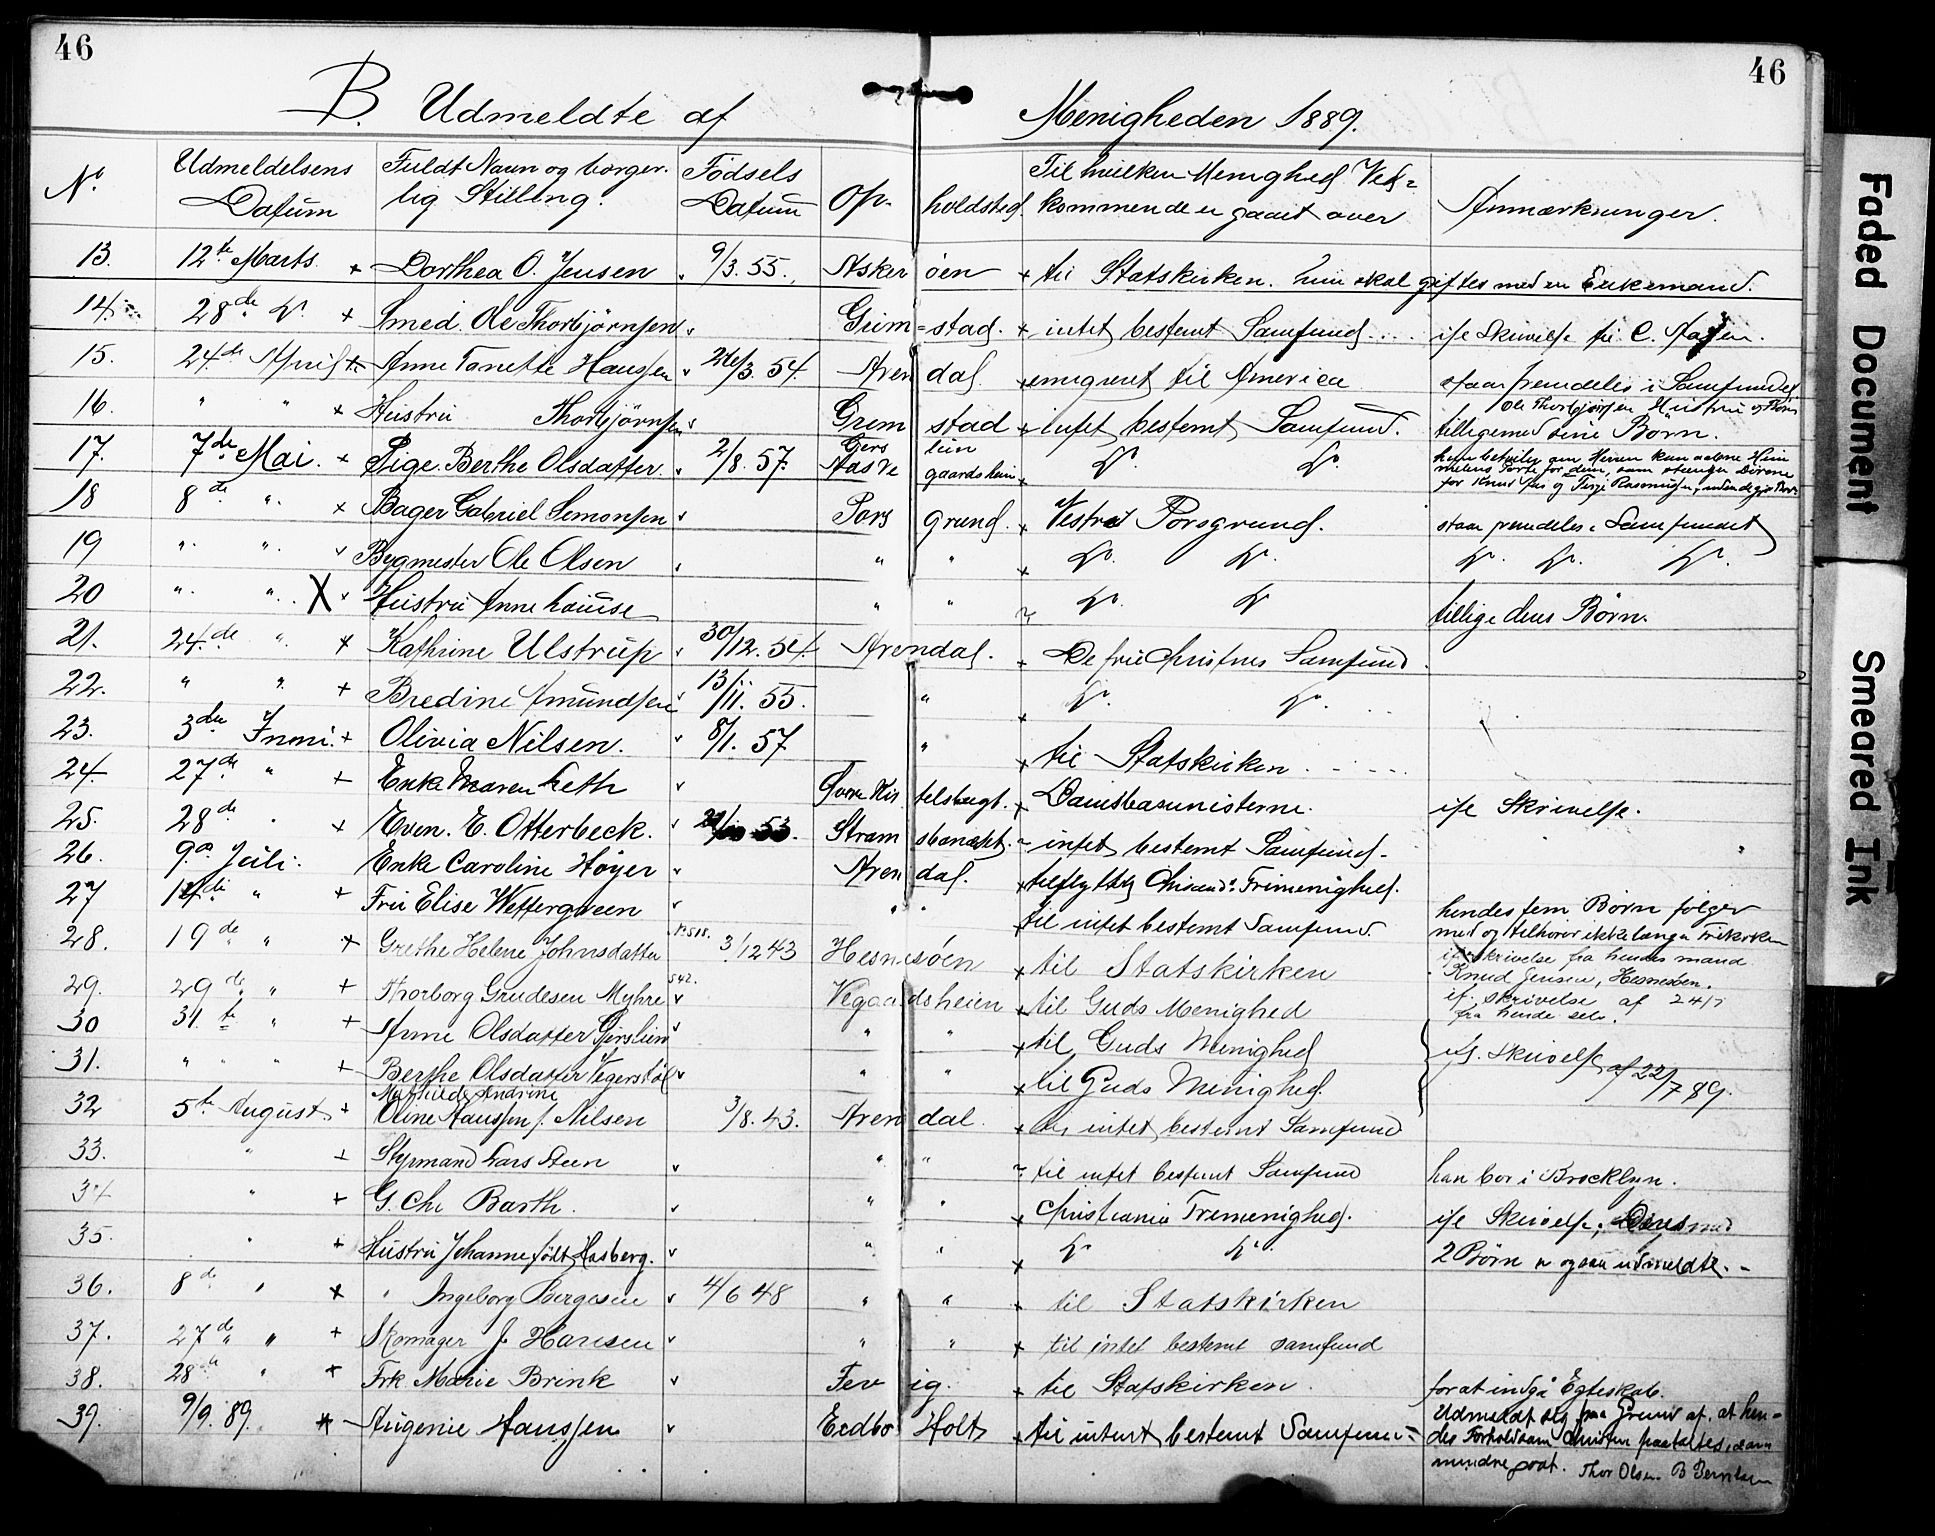 46
46
B. Udmeldte af Menigheden 1889.
No Udmeldelsens Datum Fuldt Navn og borgerlig Stilling. Fødsels Datum Opholdsted Til hvilken Menighed Vedkommende er gaaet over Anmærkninger.
13. 12te Marts + Dorthea O. Jensen 9/3. 55. Askerøen + til Statskirken. hun skal giftes med en Enkemand.
14. 28de Do + Smed. Ole Thorbjørnsen Grimstad. + intet bestemt Samfund ifl Skrivelse til C.
15. 24de April + Anne Tonette Hanssen 26/3. 54. Arendal. + emigrert til America staar fremdeles i Samfundet
16. " " + Hustru Thorbjørnsen Grimstad + intet bestemt Samfund. Ole Thorbjørnsen Hustru
tilligemed sine Børn.
17. 7de Mai. + Pige. Berthe Olsdatter. 2/8. 57. Gerslien
gaardshein + Do Do
18 8de " + Bager Gabriel Simonsen Porsgrund. + Vestre Porsgrund. staar fremdeles i Samfundet
19 " " Bygmester Ole Olsen " " + Do Do Do Do Do
20 " " X Hustru Anne Louise " " Do Do tillige deres Børn.
21. 24de " + Kathrine Ulstrup 30/12. 54. Arendal. + De frie Christnes Samfund
22. " " + Bredine Amundsen 13/11. 55. " + Do Do
23. 3die Junni. + Olivia Nilsen. 8/1. 57 " + til Statskirken
24. 27de " + Enke Maren Leth telsbugt. + ifl Skrivelse.
25. 28de " + Even. E. Otterbeck. 53. intet bestemt Samfund
26. 9de Juli. Enke Caroline Høyer Arendal. + tilflyttet Frimenighed.
27 " + Fru Elise Wettergreen " " + til intet bestemt Samfund. hendes fem Børn følger
med og tilhører ikke længer Frikirken
28. 19de " + Grethe Helene Johnsdatter 3/12 43 Hesnesøen + til Statskirken if skrivelse fra hendes mand
Knud Jensen, Hesnesøen.
29. 29de " + Thorborg Grudesen Myhre 542. Vegaardsheien + til Guds Menighed if. skrivelse af 24/7
fra hende selv.
30 31te " + Anne Olsdatter Gjerslien " " + til Guds Menighed
31. " " " + Berthe Olsdatter Vegerstøl " " + til Guds Menighed. ifl. skrivelse af 22/7 89.
32 5te August + Mathilde Andrine
Oline Hanssen f. Nilsen 3/8. 43. Arendal. + til intet bestemt Samfund
33. " + Styrmand Lars Steen " " til intet bestemt Samfund han bor i Brocklyn.
34 " + G. Chr Barth. " " + Christiania Frimenighed. ifl Skrivelse,
35. " + Hustru Johanne født Hasberg. " " + Do Do 2 Børn er ogsaa udmeldte.
36. 8de " + " Ingeborg Bergesen 4/6 48 " " + til Statskirken
37. 27de " + Skomager J. Hansen " " + til intet bestemt samfund
38. 28de " + Frk. Marie Brink Fevig. + til Statskirken. for at indgå Egteskab.
39. 9/9. 89. + Augenie Hanssen Holt + til intent bestemt Samfund Udmeldt sig paa Grund af, at hendes
Forhold som Christen paataltes, som
mindre godt. Thor Olsen. B Berntsen
Faded Document
Smeared Ink